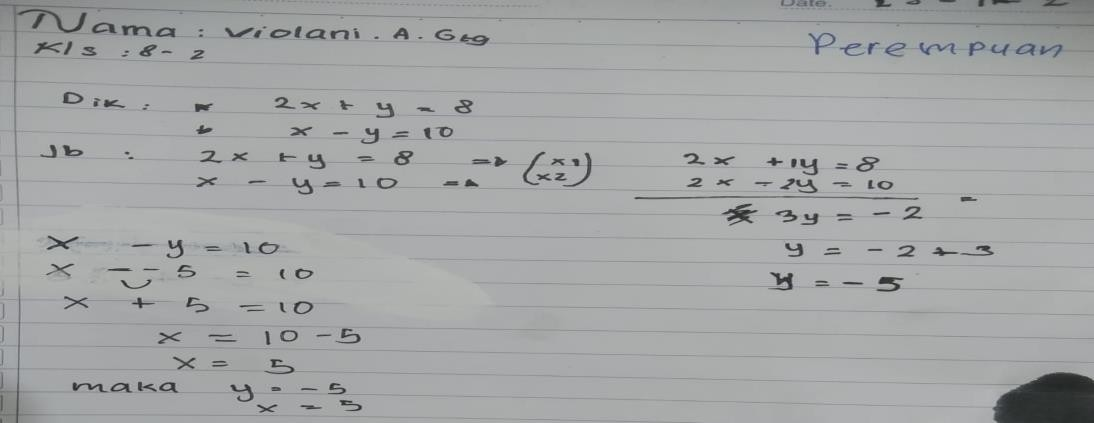 Date.
Nama : Violani . A . Gtg
Perempuan
Kls : 8 - 2
Dik : 2x + y = 8
x - y = 10
Jb : 2x + y = 8 => (x1
x - y = 10 => x2)
2x + 1y = 8
2x - 2y = 10 -
3y = -2
y = -2 + -3
y = -5
x - y = 10
x - - 5 = 10
x + 5 = 10
x = 10 - 5
x = 5
maka y = -5
x = 5